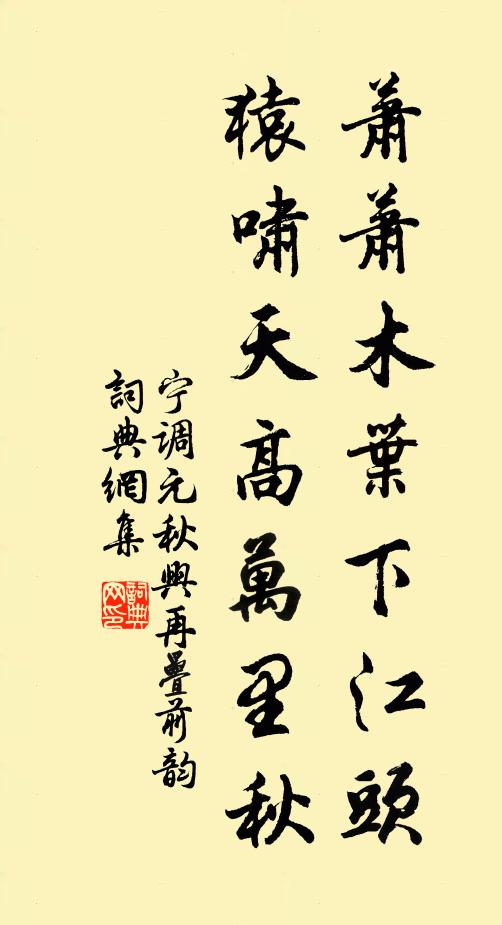 蕭蕭木葉下江頭
猿嘯天高萬里秋
宁調元秋興再疊前韵
詞典網集
詞典网印